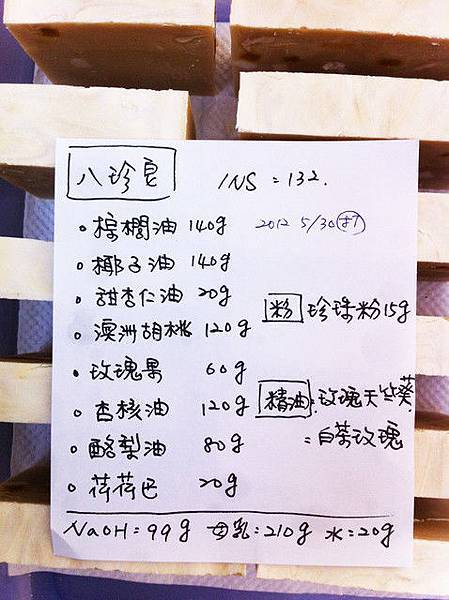 八珍皂 INS = 132.
。棕櫚油 140g 2012 5/30 打
。椰子油 140g
。甜杏仁油 20g
粉 珍珠粉15g
。澳洲胡桃 120g
。玫瑰果 60g
精油：玫瑰天竺葵
。杏核油 120g
= 白茶玫瑰
。酪梨油 80g
。荷荷巴 20g
NaOH = 99g 母乳 = 210g 水 = 20g